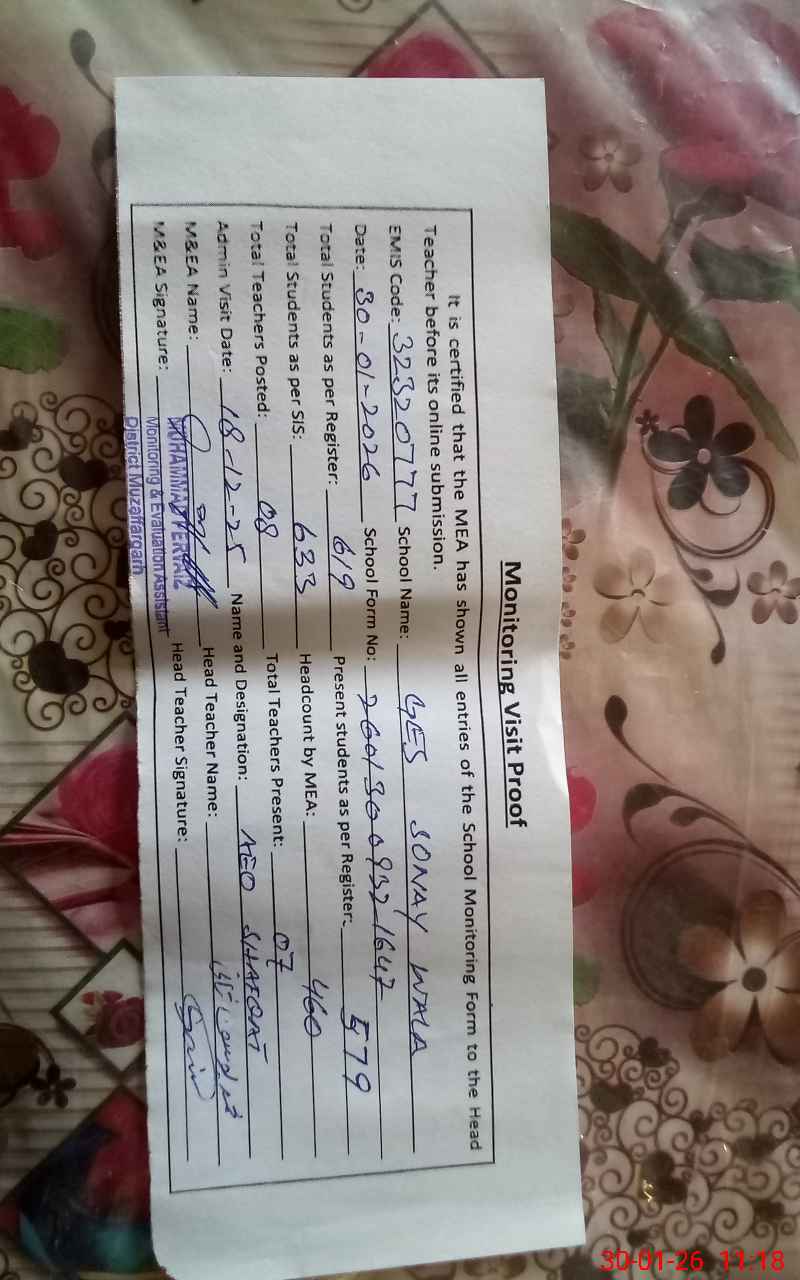 Monitoring Visit Proof
It is certified that the MEA has shown all entries of the School Monitoring Form to the Head
Teacher before its online submission.
EMIS Code: 32320777 School Name: GES SONAY WALA
Date: 30-01-2026 School Form No: 2601300932-1647
Total Students as per Register: 619 Present students as per Register: 579
Total Students as per SIS: 633 Headcount by MEA: 460
Total Teachers Posted: 08 Total Teachers Present: 07
Admin Visit Date: 18-12-25 Name and Designation: AEO SHAFQAT
M&EA Name: MUHAMMAD PERVAIZ Head Teacher Name:
M&EA Signature: Monitoring & Evaluation Assistant Head Teacher Signature:
District Muzaffargarh
30-01-26 11:18